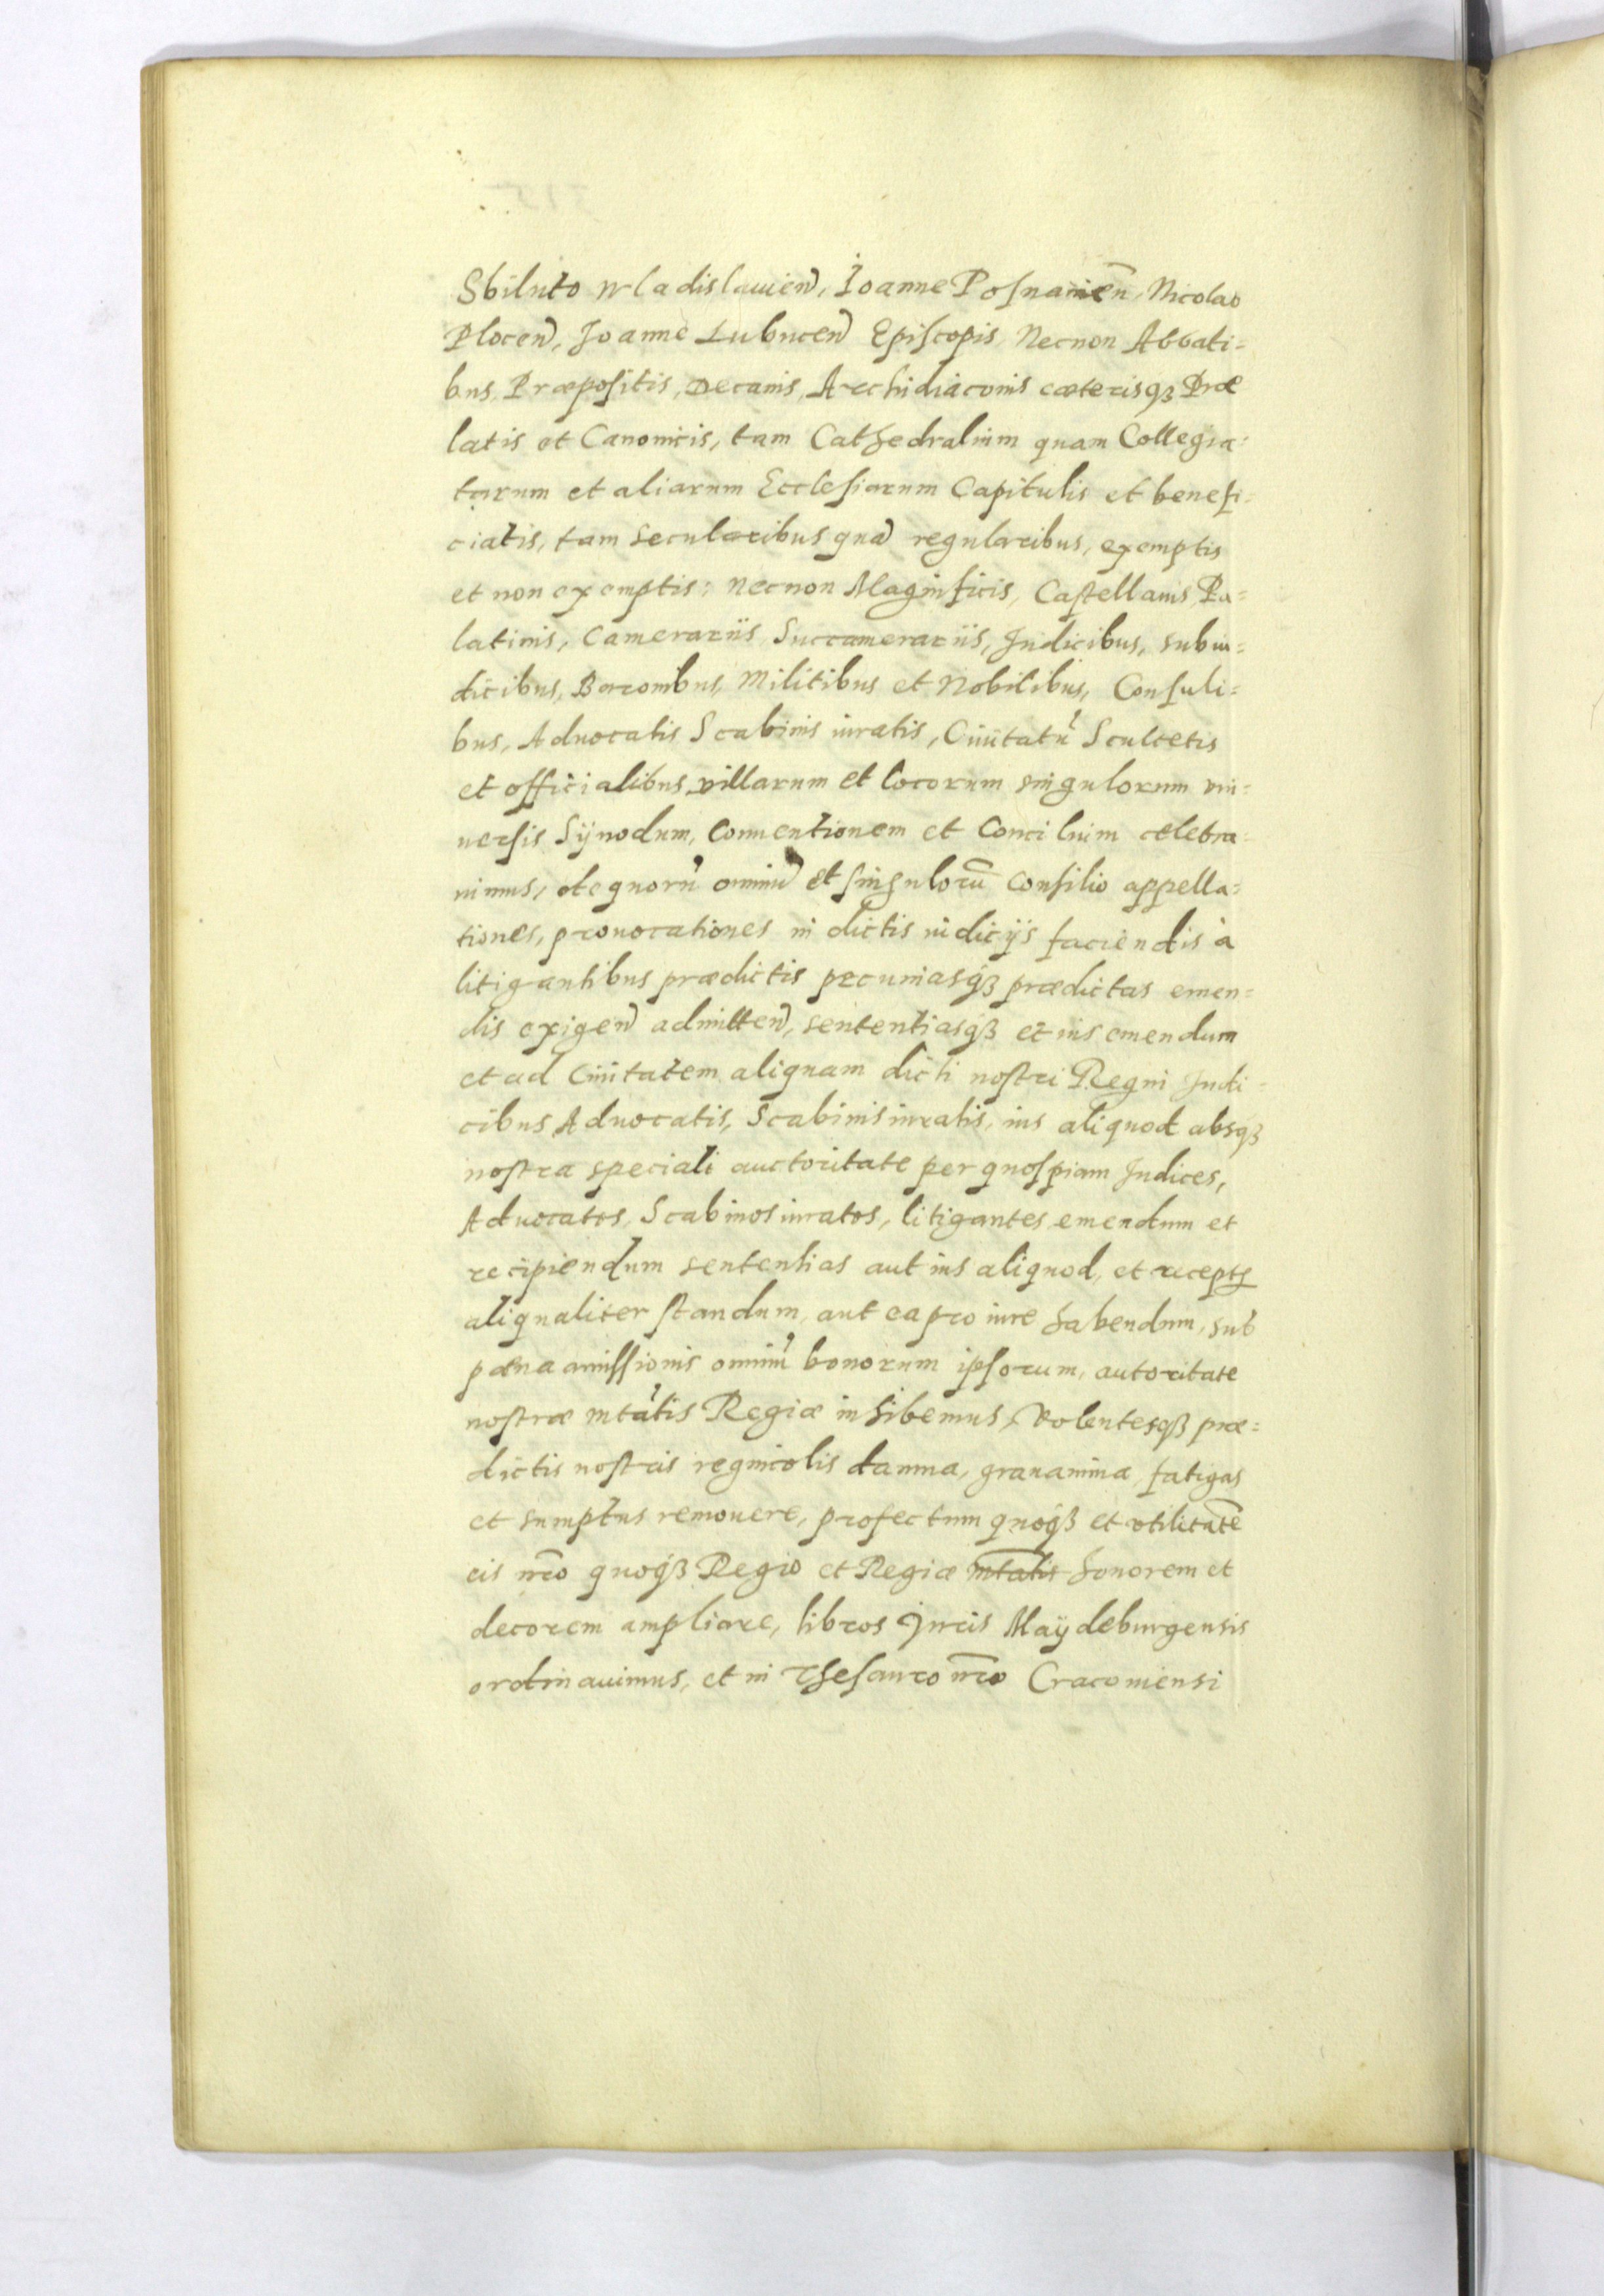 Sbiluto Wladislauien̄, Ioanne Posnanien̄, Nicolao
Plocen̄, Joanne Lubucen̄ Episcopis, Necnon Abbati=
bus, Præpositis, Decanis, Archidiaconis cæterisqꝫ Præ
latis et Canonicis, tam Cathedralium quam Collegia=
tarum et aliarum Ecclesiarum Capitulis et benefi=
ciatis, tam Secularibus quā regularibus, exemptis
et non exemptis: necnon Magnificis, Castellanis, Pa=
latinis, Camerariis Succamerariis, Judicibus, subiu=
dicibus, Baronibus, Militibus et Nobilibus, Consuli=
bus, Aduocatis Scabinis iuratis, Ciuitatū Scultetis
et officialibus villarum et locorum singulorum vni=
uersis Sÿnodum, Conuentionem et Concilium celebra=
uimus, de quorū omniū et singulorū consilio appella=
tiones, prouocationes in dictis iudicijs faciendis à
litigantibus prædictis pecuniasqꝫ prædictas emen=
dis exigen̄ admitten̄, sententiasqꝫ et ius emendum
et ad Ciuitatem aliquam dicti nostri Regni Judi=
cibus Aduocatis, Scabinis iuratis, ius aliquod absqꝫ
nostra speciali auctoritate per quospiam Judices,
Aduocatos, Scabinos iuratos, litigantes emendum et
recipiendum sententias aut ius aliquod, et receptꝭ
aliqualiter standum, aut ea pro iure habendum, sub
pæna amissionis omniū bonorum ipsorum, autoritate
nostræ mtātis Regiæ inhibemus, Volentesqꝫ præ=
dictis nostris regnicolis damna, grauamina, fatigas
et sumptus remouere, profectum quoqꝫ et vtilitatē
eis nr̄o quoqꝫ Regio et Regiæ mtatis honorem et
decorem ampliare, libros Juris Maÿdeburgensis
ordinauimus, et in Thesauro nr̄o Cracouiensi